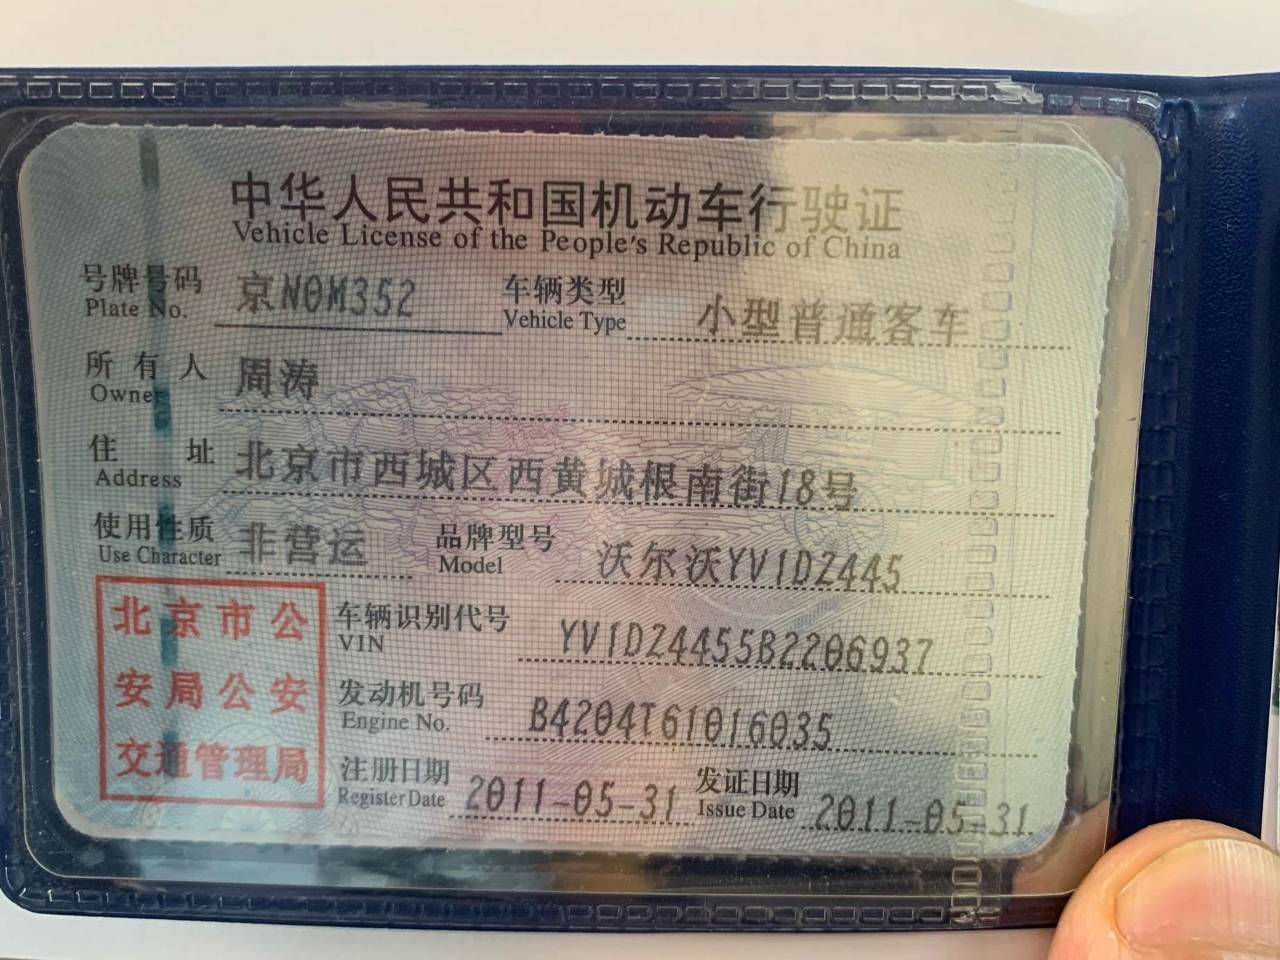 中华人民共和国机动车行驶证
Vehicle License of the People's Republic of China
号牌号码 京N0M352 车辆类型 小型普通客车
Plate No. Vehicle Type
所有人 周涛
Owner
住址 北京市西城区西黄城根南街18号
Address
使用性质 非营运 品牌型号 沃尔沃YV1DZ445
Use Character Model
北京市公
安局公安
交通管理局
车辆识别代号 YV1DZ4455B2206937
VIN
发动机号码 B4204T61016035
Engine No.
注册日期 2011-05-31 发证日期 2011-05-31
Register Date Issue Date